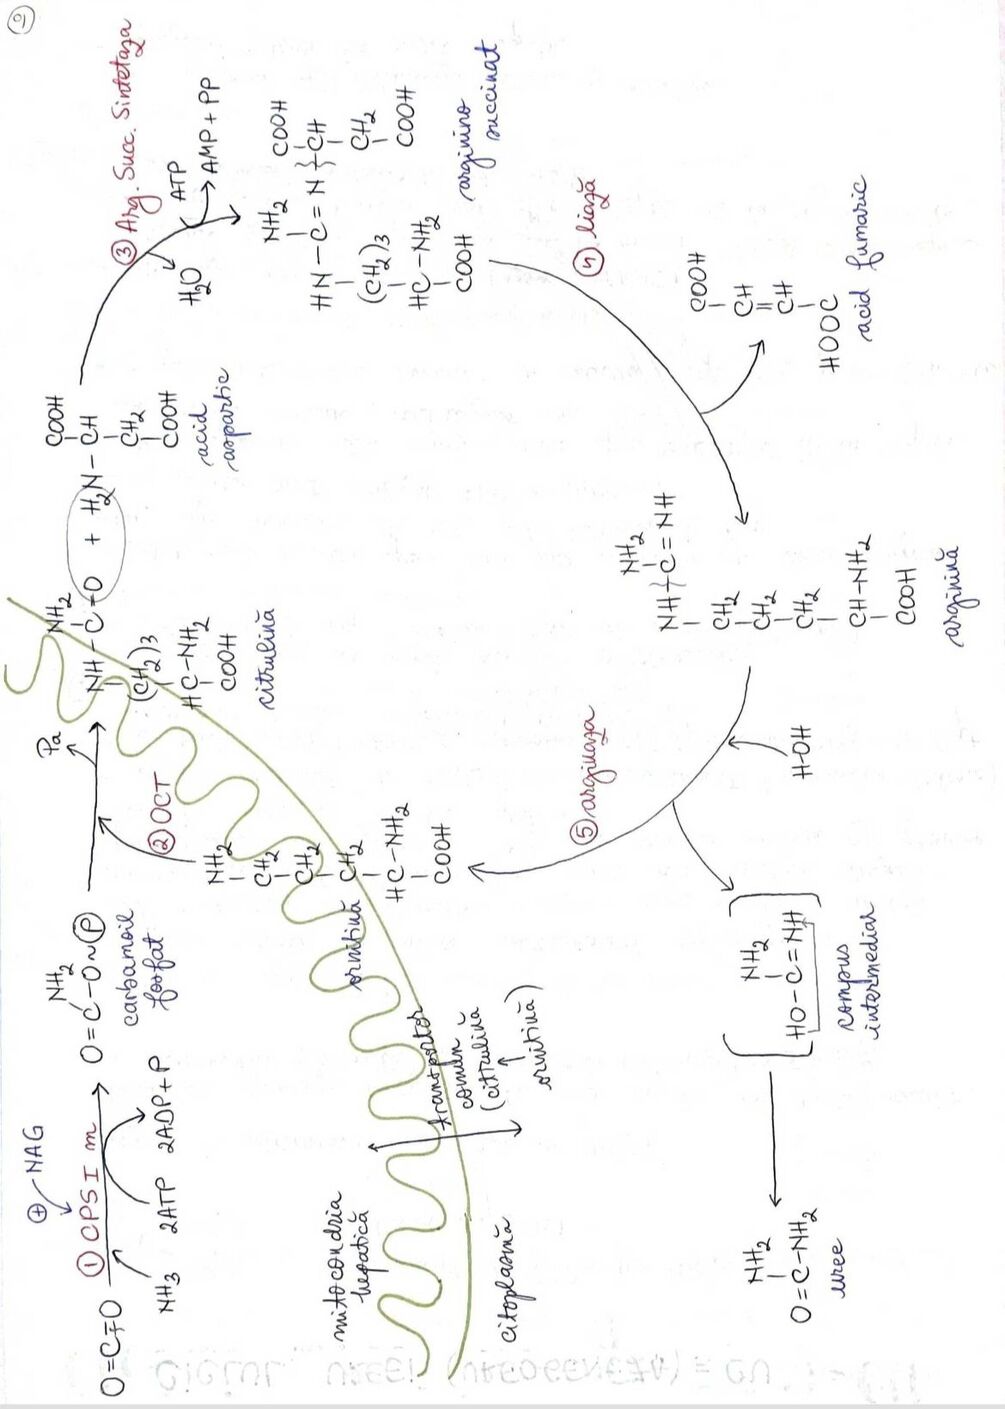 ⊕ NAG
① CPS I m
O=C=O
NH3
2ATP
2ADP+P
NH2
O=C-O~Ⓟ
carbamoil
fosfat
Pa
② OCT
NH2
CH2
CH2
CH2
HC-NH2
COOH
ornitină
NH2
NH-C=O + H2N-CH
(CH2)3
HC-NH2
COOH
citrulină
COOH
CH2
COOH
acid
aspartic
③ Arg. Succ. Sintetaza
2
H2O
ATP
AMP+PP
NH2
COOH
HN-C=N-CH
(CH2)3
CH2
HC-NH2
COOH
COOH
arginino
succinat
④ liază
2
COOH
CH
CH
HOOC
acid fumaric
NH2
NH-C=NH
CH2
CH2
CH2
CH-NH2
COOH
arginină
⑤ arginaza
H-OH
NH2
HO-C=NH
compus
intermediar
NH2
O=C-NH2
uree
mitocondria
hepatică
citoplasmă
transportor
comun
(citrulină
ornitină)
CICLUL UREEI (UREOGENEZA) = CU